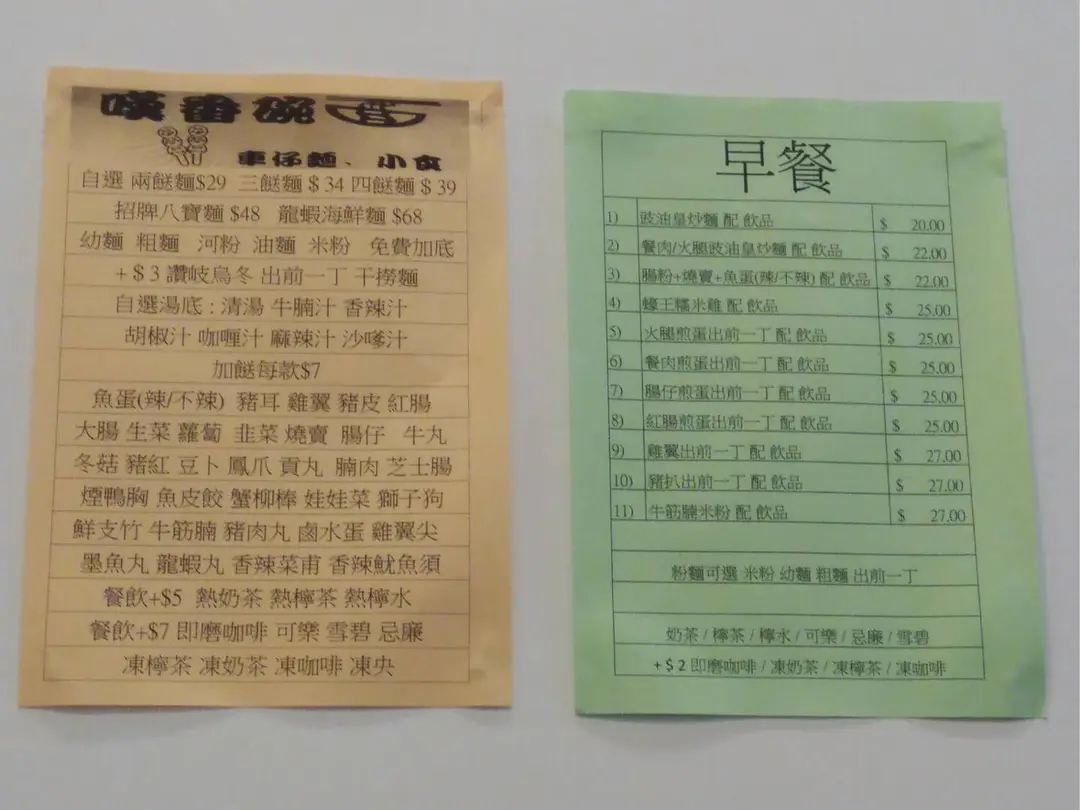 嘆番碗
車仔麵、小食
自選 兩餸麵$29 三餸麵 $ 34 四餸麵 $ 39
招牌八寶麵 $48 龍蝦海鮮麵 $68
幼麵 粗麵 河粉 油麵 米粉 免費加底
+ $ 3 讚岐烏冬 出前一丁 干撈麵
自選湯底 : 清湯 牛腩汁 香辣汁
胡椒汁 咖喱汁 麻辣汁 沙嗲汁
加餸每款$7
魚蛋(辣/不辣) 豬耳 雞翼 豬皮 紅腸
大腸 生菜 蘿蔔 韭菜 燒賣 腸仔 牛丸
冬菇 豬紅 豆卜 鳳爪 貢丸 腩肉 芝士腸
煙鴨胸 魚皮餃 蟹柳棒 娃娃菜 獅子狗
鮮支竹 牛筋腩 豬肉丸 鹵水蛋 雞翼尖
墨魚丸 龍蝦丸 香辣菜甫 香辣魷魚須
餐飲+$5 熱奶茶 熱檸茶 熱檸水
餐飲+$7 即磨咖啡 可樂 雪碧 忌廉
凍檸茶 凍奶茶 凍咖啡 凍央
早餐
1) 豉油皇炒麵 配 飲品 $ 20.00
2) 餐肉/火腿豉油皇炒麵 配 飲品 $ 22.00
3) 腸粉+燒賣+魚蛋(辣/不辣) 配 飲品 $ 22.00
4) 蠔王糯米雞 配 飲品 $ 25.00
5) 火腿煎蛋出前一丁 配 飲品 $ 25.00
6) 餐肉煎蛋出前一丁 配 飲品 $ 25.00
7) 腸仔煎蛋出前一丁 配 飲品 $ 25.00
8) 紅腸煎蛋出前一丁 配 飲品 $ 25.00
9) 雞翼出前一丁 配 飲品 $ 27.00
10) 豬扒出前一丁 配 飲品 $ 27.00
11) 牛筋腩米粉 配 飲品 $ 27.00
粉麵可選 米粉 幼麵 粗麵 出前一丁
奶茶 / 檸茶 / 檸水 / 可樂 / 忌廉 / 雪碧
+ $ 2 即磨咖啡 / 凍奶茶 / 凍檸茶 / 凍咖啡